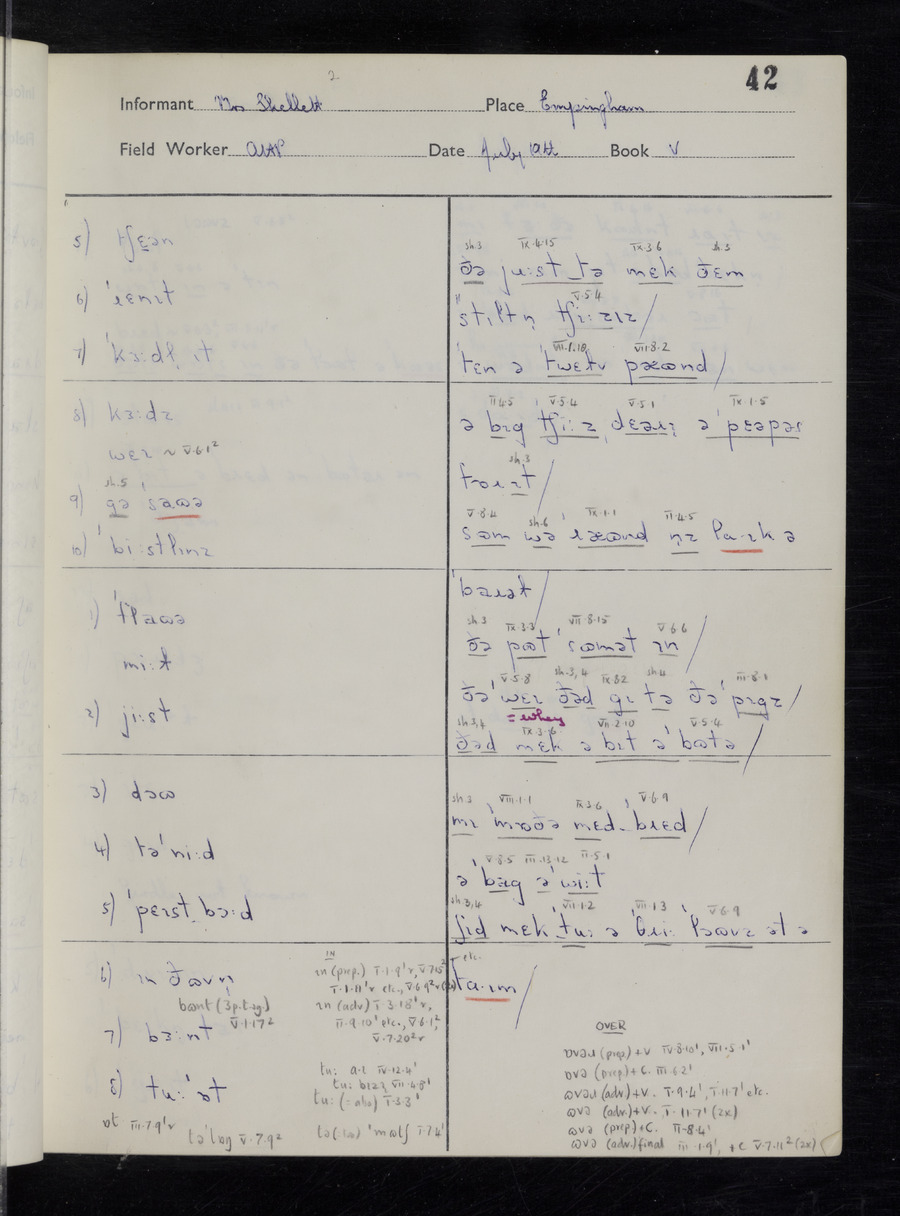 2
42
Informant Mrs Shellett Place Empingham
Field Worker Date July Book V
5) tʃɛən
6) ˈɪɛnɪt
7) ˈkɜːdl̩ ɪt
8) kɜːdz
wɛɪ ~ V.6.1²
sh.5
9) gə sauə
10) ˈbiːstlɪnz
1) ˈflauə
miːt
2) jiːst
3) dəω
4) təˈniːd
5) ˈpɛɪst bɔːd
6) ɪn ðavn̩
bωnt (3 p.t.sg.)
V.1.17²
7) bɜːnt
8) tuːˈət
ət III.7.9'v
təˈlωg V.7.9²
IN
ɪn (prep.) I.1.9'v, V.7.15²
I.1.11'v etc., V.6.9²v
ɪn (adv) I.3.18'v,
II.9.10' etc., V.6.1²,
V.7.20²v
tuː a.ɪ IV.12.4'
tuː bɪəz VII.4.8'
tuː (=also) I.3.3'
tə (too) ˈmωtʃ I.7.4'
sh.3 IX.4.15 IX.3.6 sh.3
ðə juːst tə mɛk ðɛm
V.5.4
stɪltn̩ tʃiːzɪz /
VII.1.10 VII.8.2
ˈtɛn ə ˈtwɛlv pæωnd /
II.4.5 V.5.4 V.5.1 IX.1.5
ə bɪg tʃiːz, dɛəɪɪ ə ˈpɛəpəz
sh.3
fəɪ ɪt /
V.8.4 sh.6 IX.1.1 II.4.5
sωm wə ˈɪæωnd nɪ laːk ə
ˈbaɪət /
sh.3 IX.3.3 VII.8.15 V.6.6
ðə pωt ˈsωmət ɪn /
V.5.8 sh.3,4 IX.8.2 sh.4 III.8.1
ðəˈwɛɪ ðəd gɪ tə ðəˈpɪgz /
= whey
sh.3,4 IX.3.6 VII.2.10 V.5.4
ðəd mɛk ə bɪt əˈbωtə /
sh.3 VIII.1.1 IX.3.6 V.6.9
mɪ ˈmωðə mɛd bɪɛd /
V.8.5 III.13.12 II.5.1
ə ˈbag əˈwiːt
sh.3,4 VII.1.2 VII.1.3 V.6.9
ʃɪd mɛk ˈtuː ə ˈθɪiː ˈləωvz ət ə
etc.
ˈtaːɪm /
OVER
ωvəɪ (prep) + V IV.8.10', VII.5.1'
ωvə (prep) + C. III.6.2'
ωvəɪ (adv) + V. I.9.4', I.11.7' etc.
ωvə (adv.) + V. I.11.7' (2x)
ωvə (prep) + C. II.8.4'
ωvə (adv.) final III.1.9', + C V.7.11² (2x)